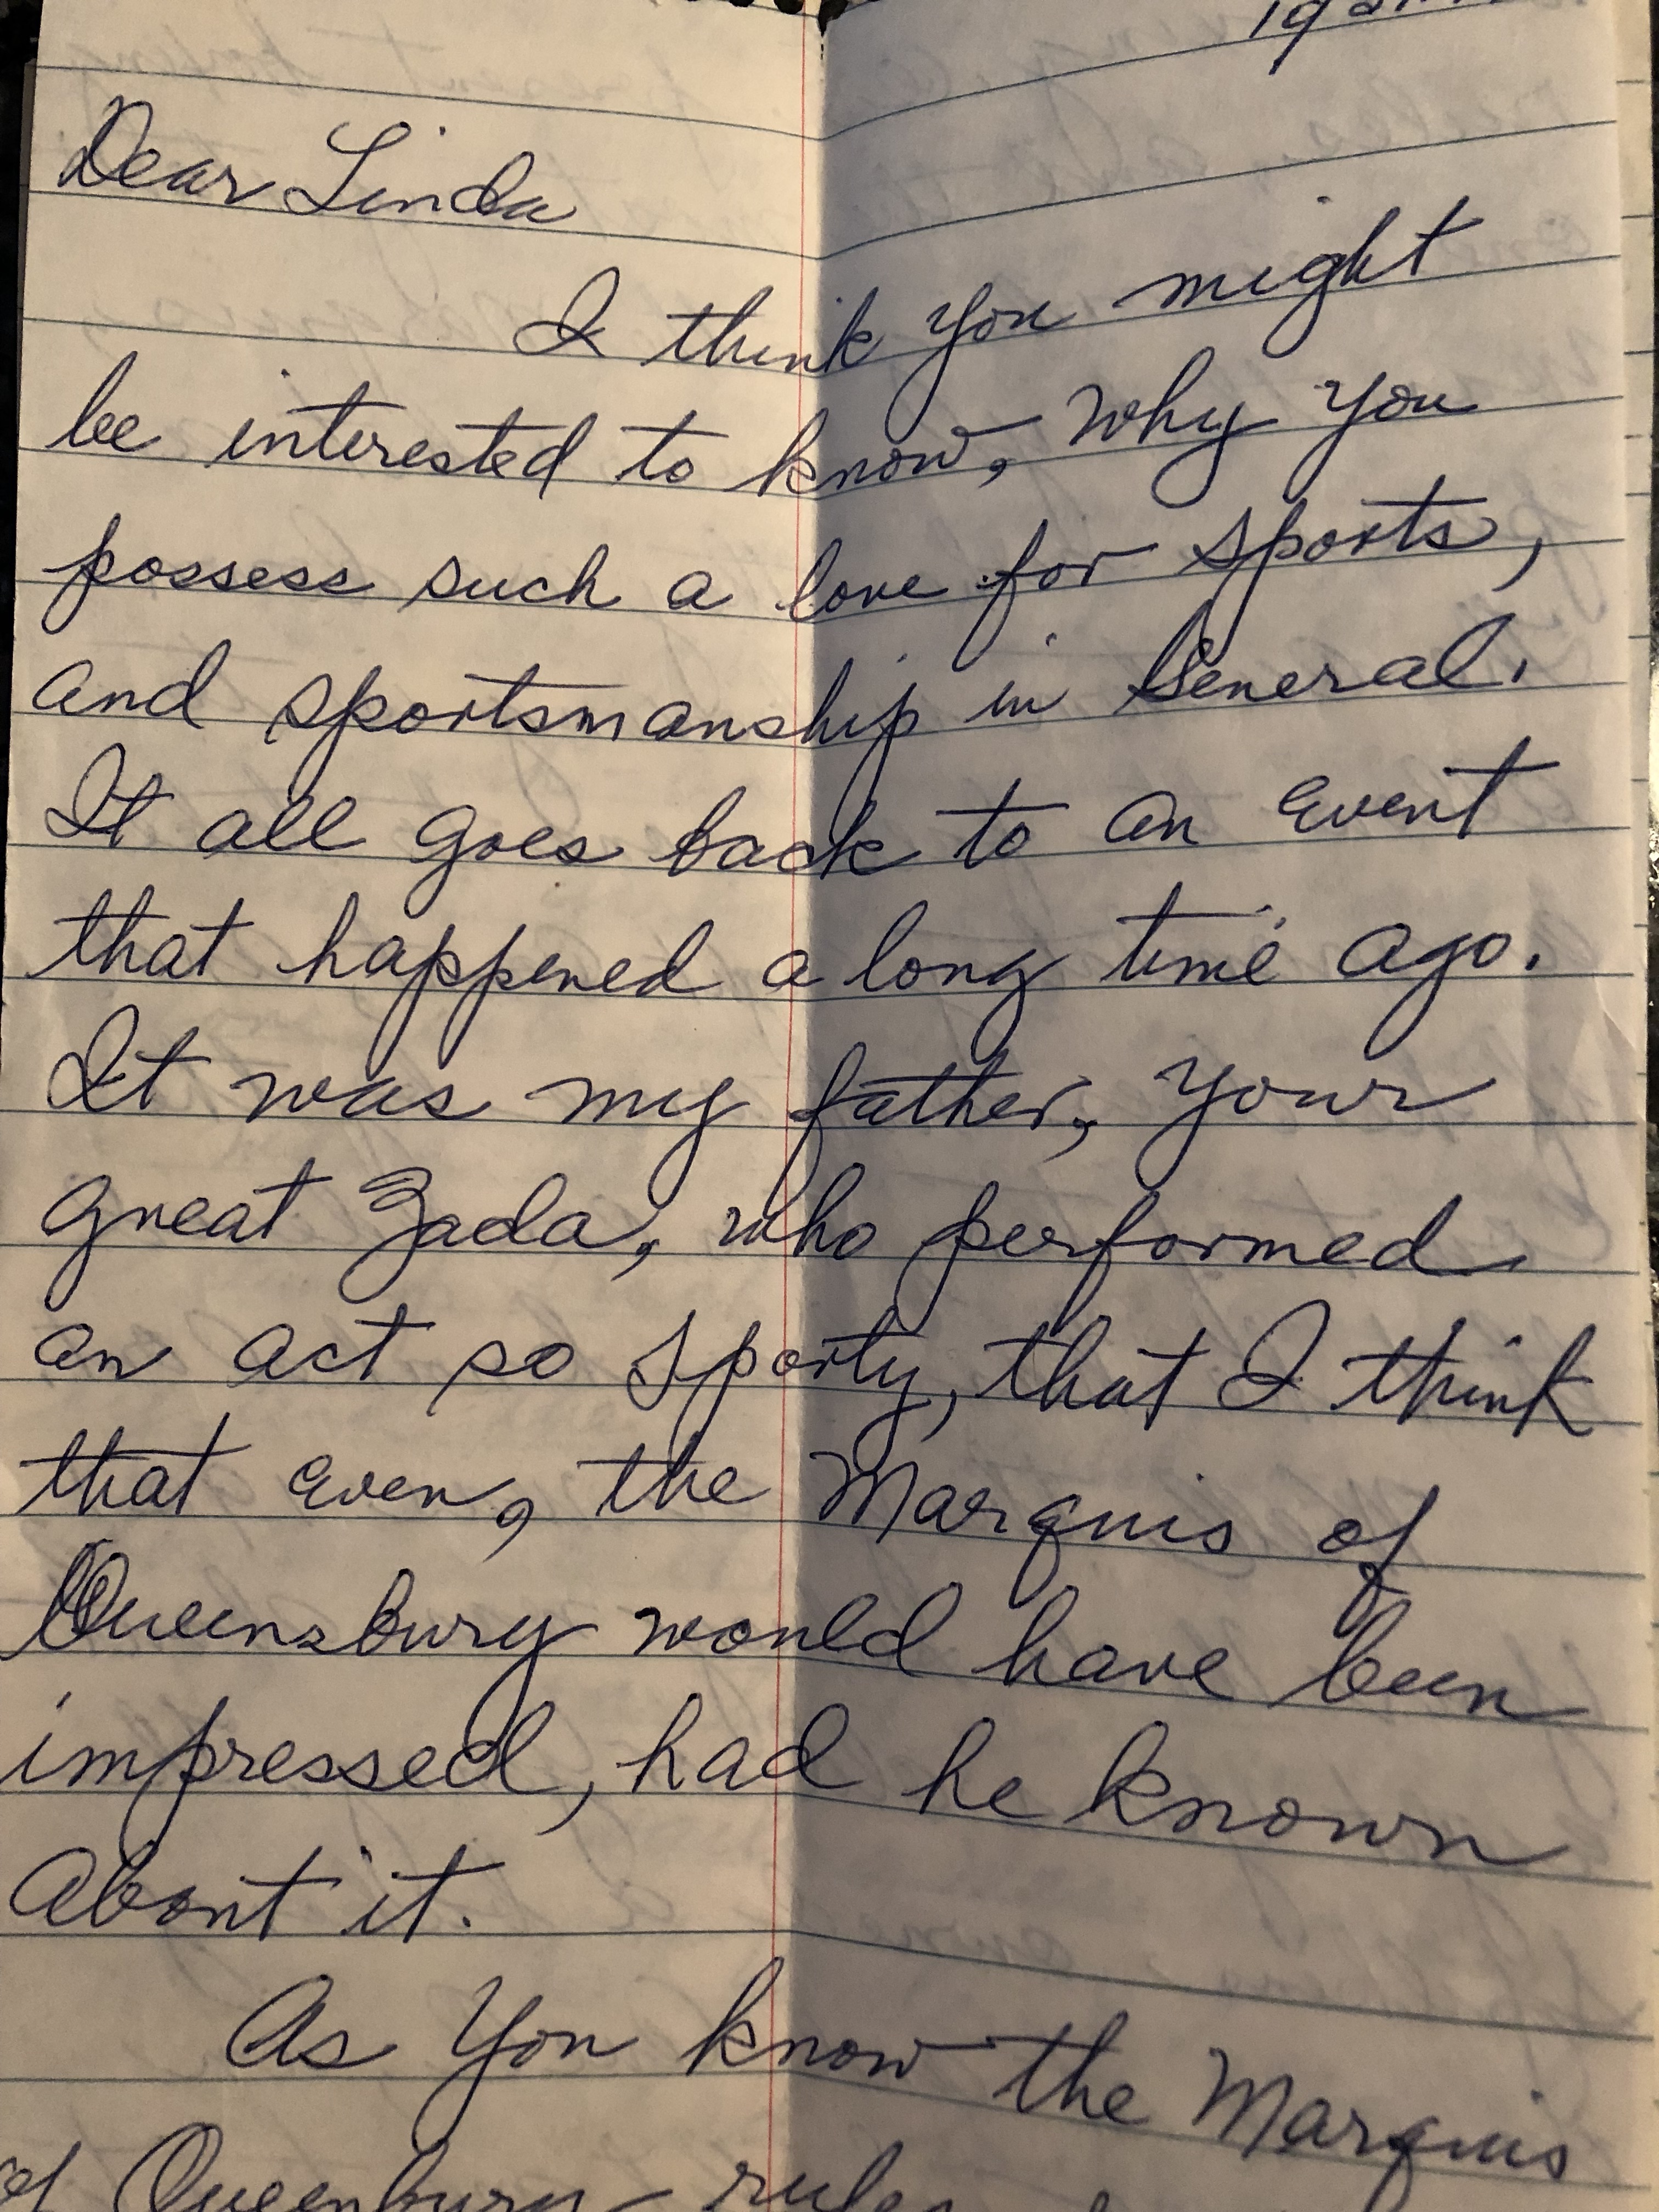 Dear Linda
I think you might
be interested to know, why you
possess such a love for sports,
and sportsmanship in General.
It all goes back to an event
that happened a long time ago.
It was my father, your
great Zada, who performed
an act so sporty, that I think
that even, the Marquis of
Queensbury would have been
impressed, had he known
about it.
As you know the Marquis
of Queenbury rules